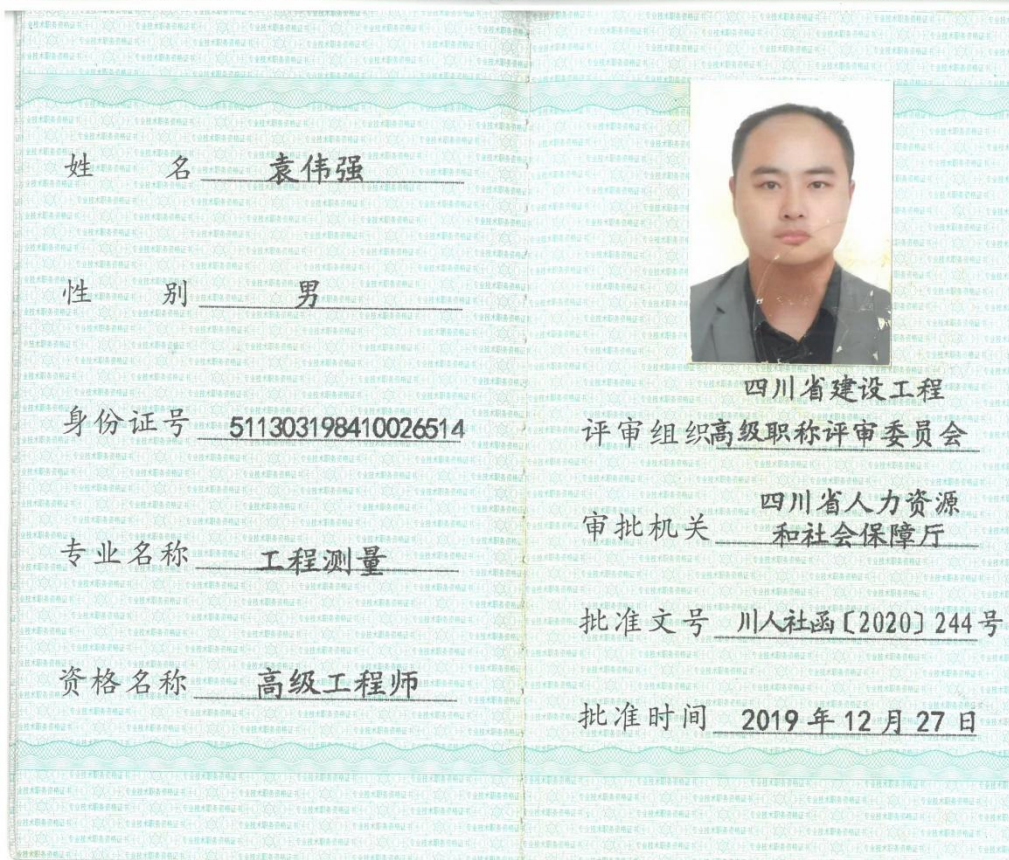 姓 名 袁伟强
性 别 男
身份证号 511303198410026514
专业名称 工程测量
资格名称 高级工程师
四川省建设工程
评审组织 高级职称评审委员会
四川省人力资源
审批机关 和社会保障厅
批准文号 川人社函〔2020〕244号
批准时间 2019年12月27日